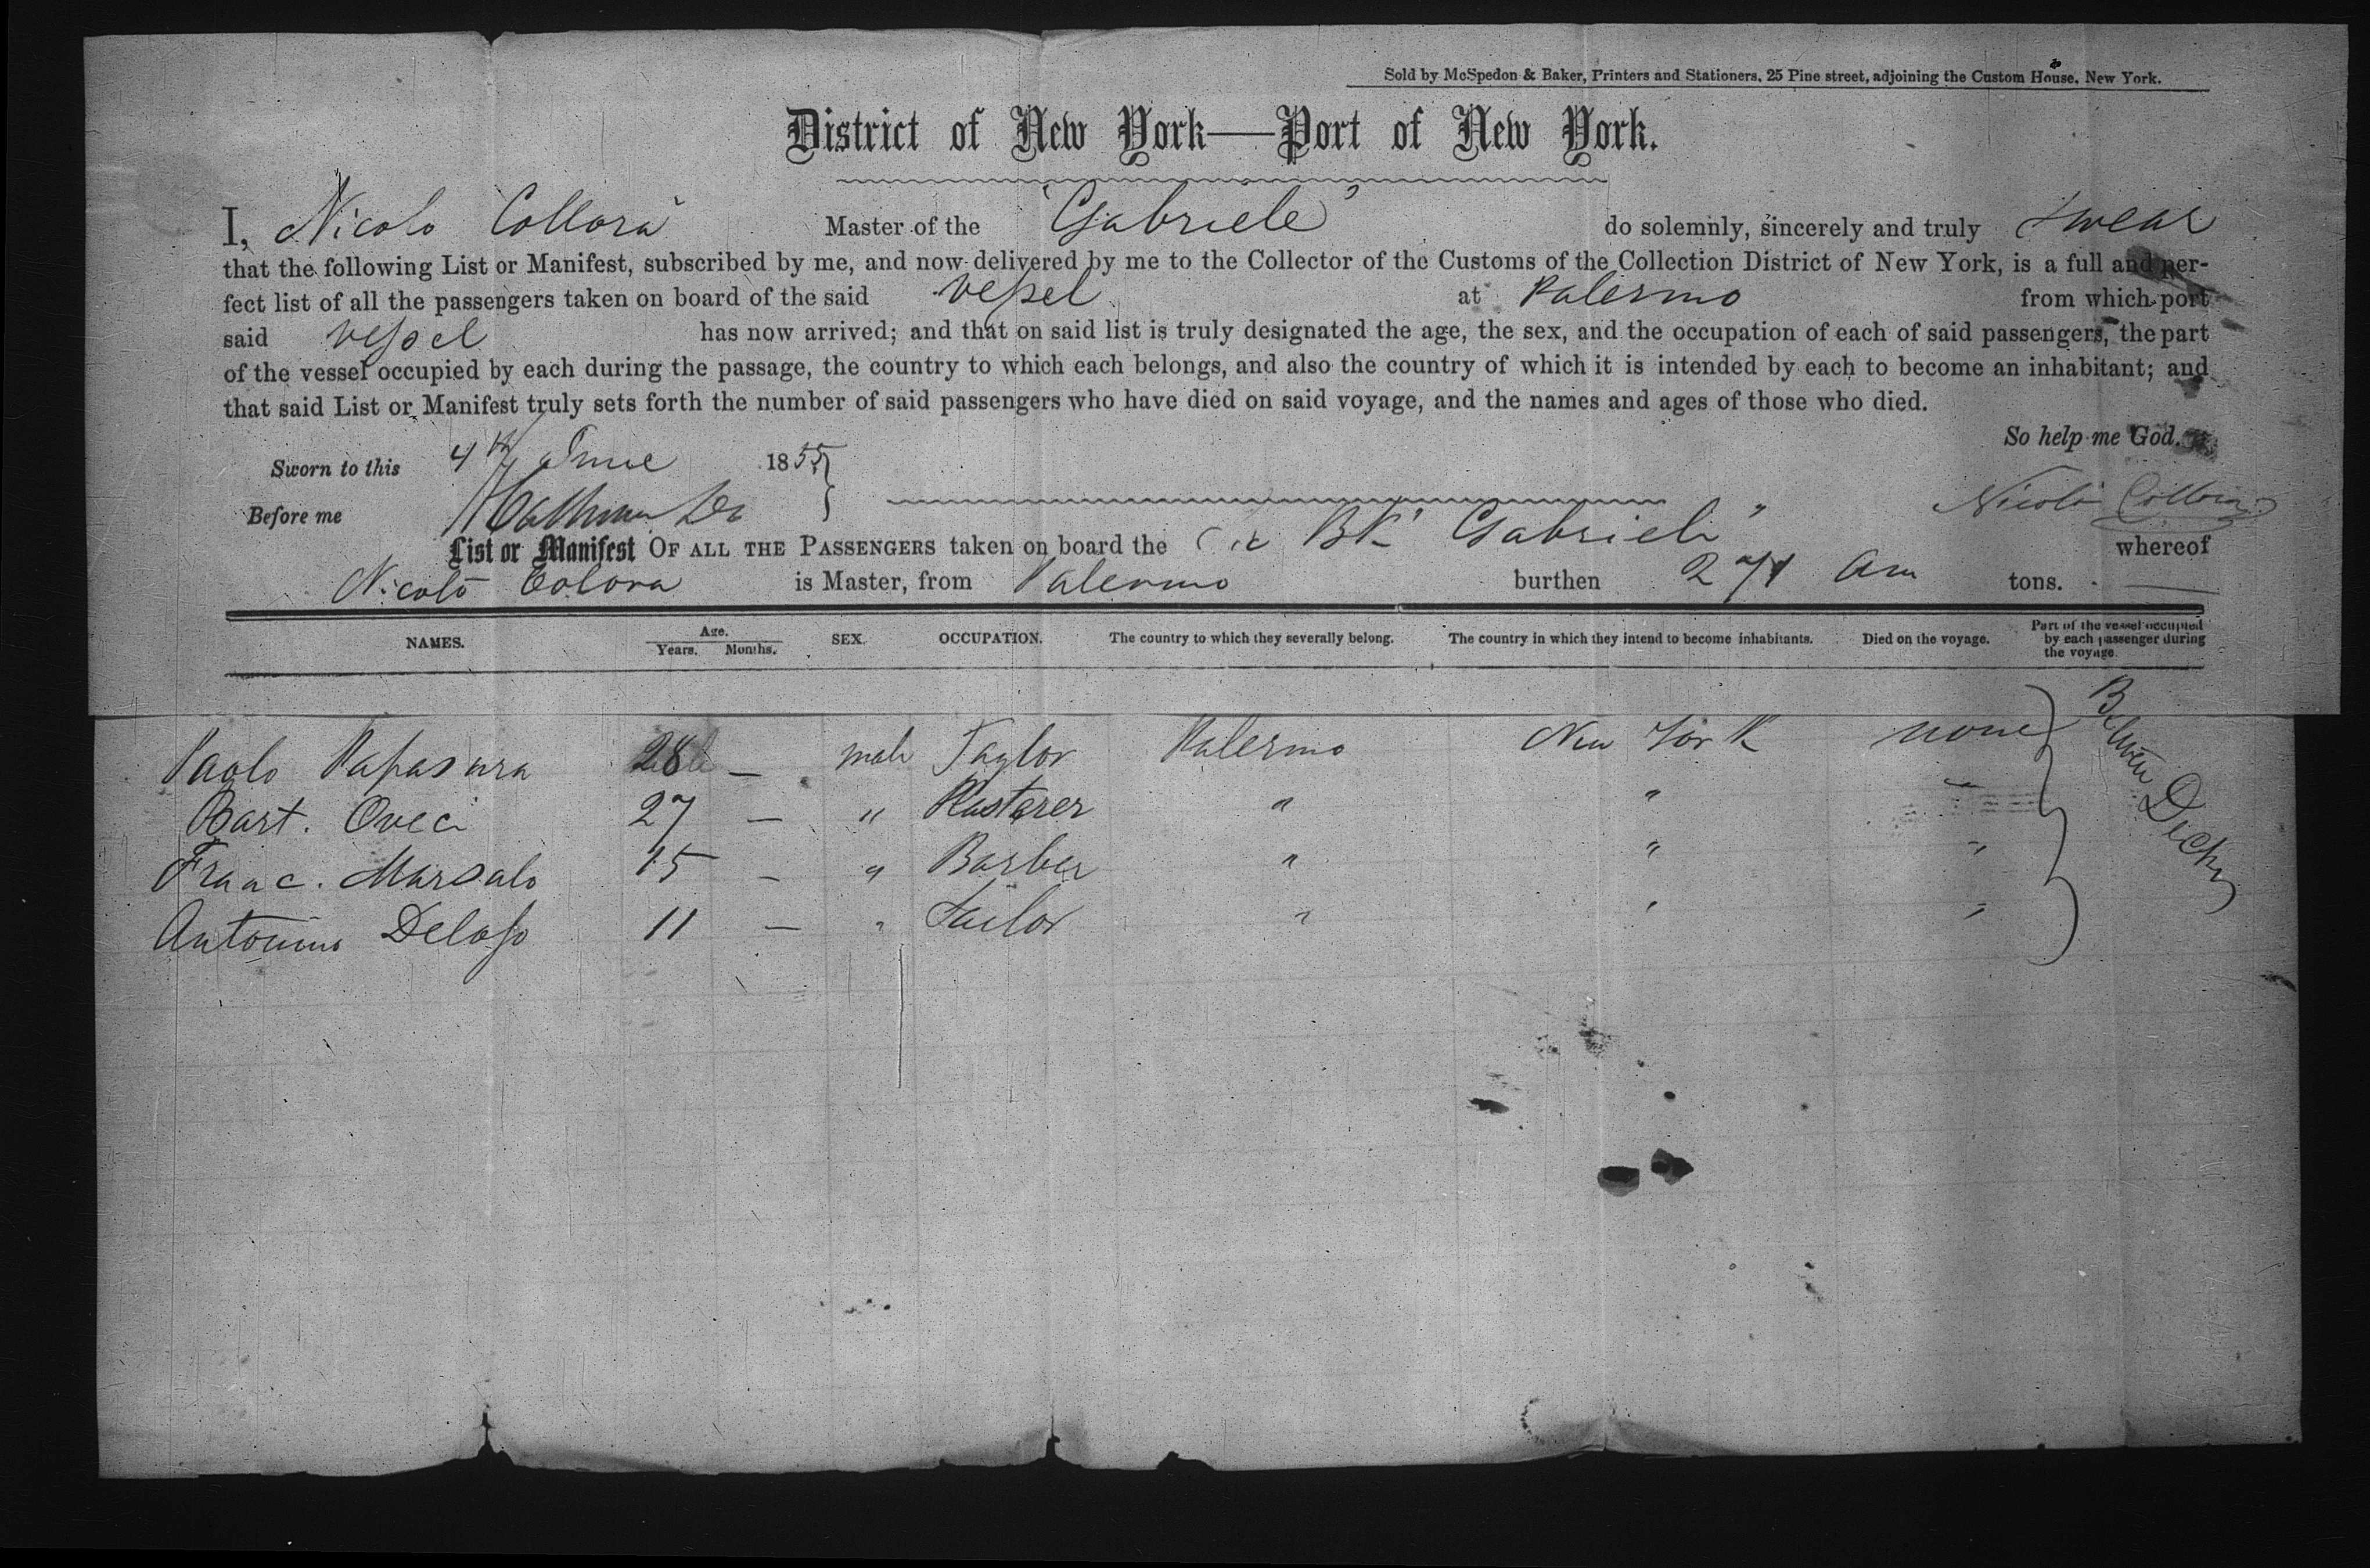 Sold by McSpedon & Baker, Printers and Stationers, 25 Pine street, adjoining the Custom House, New York.
District of New York—Port of New York.
I, Nicolo Collora Master of the "Gabriele" do solemnly, sincerely and truly swear
that the following List or Manifest, subscribed by me, and now delivered by me to the Collector of the Customs of the Collection District of New York, is a full and per-
fect list of all the passengers taken on board of the said vessel at Palermo from which port
said vessel has now arrived; and that on said list is truly designated the age, the sex, and the occupation of each of said passengers, the part
of the vessel occupied by each during the passage, the country to which each belongs, and also the country of which it is intended by each to become an inhabitant; and
that said List or Manifest truly sets forth the number of said passengers who have died on said voyage, and the names and ages of those who died.
So help me God.
Sworn to this 4th June 1855
Before me Nicolo Collora
List or Manifest OF ALL THE PASSENGERS taken on board the Bk "Gabriele" whereof
Nicolo Colora is Master, from Palermo burthen 271 tons.
NAMES. Age. Years. Months. SEX. OCCUPATION. The country to which they severally belong. The country in which they intend to become inhabitants. Died on the voyage. Part of the vessel occupied by each passenger during the voyage.
Paolo Papasura 28 — male Taylor Palermo New York none Between Decks
Bart. Oveci 27 — " Plasterer " " "
Franc. Marsalo 15 — " Barber " " "
Antonino Delaso 11 — " Tailor " " "